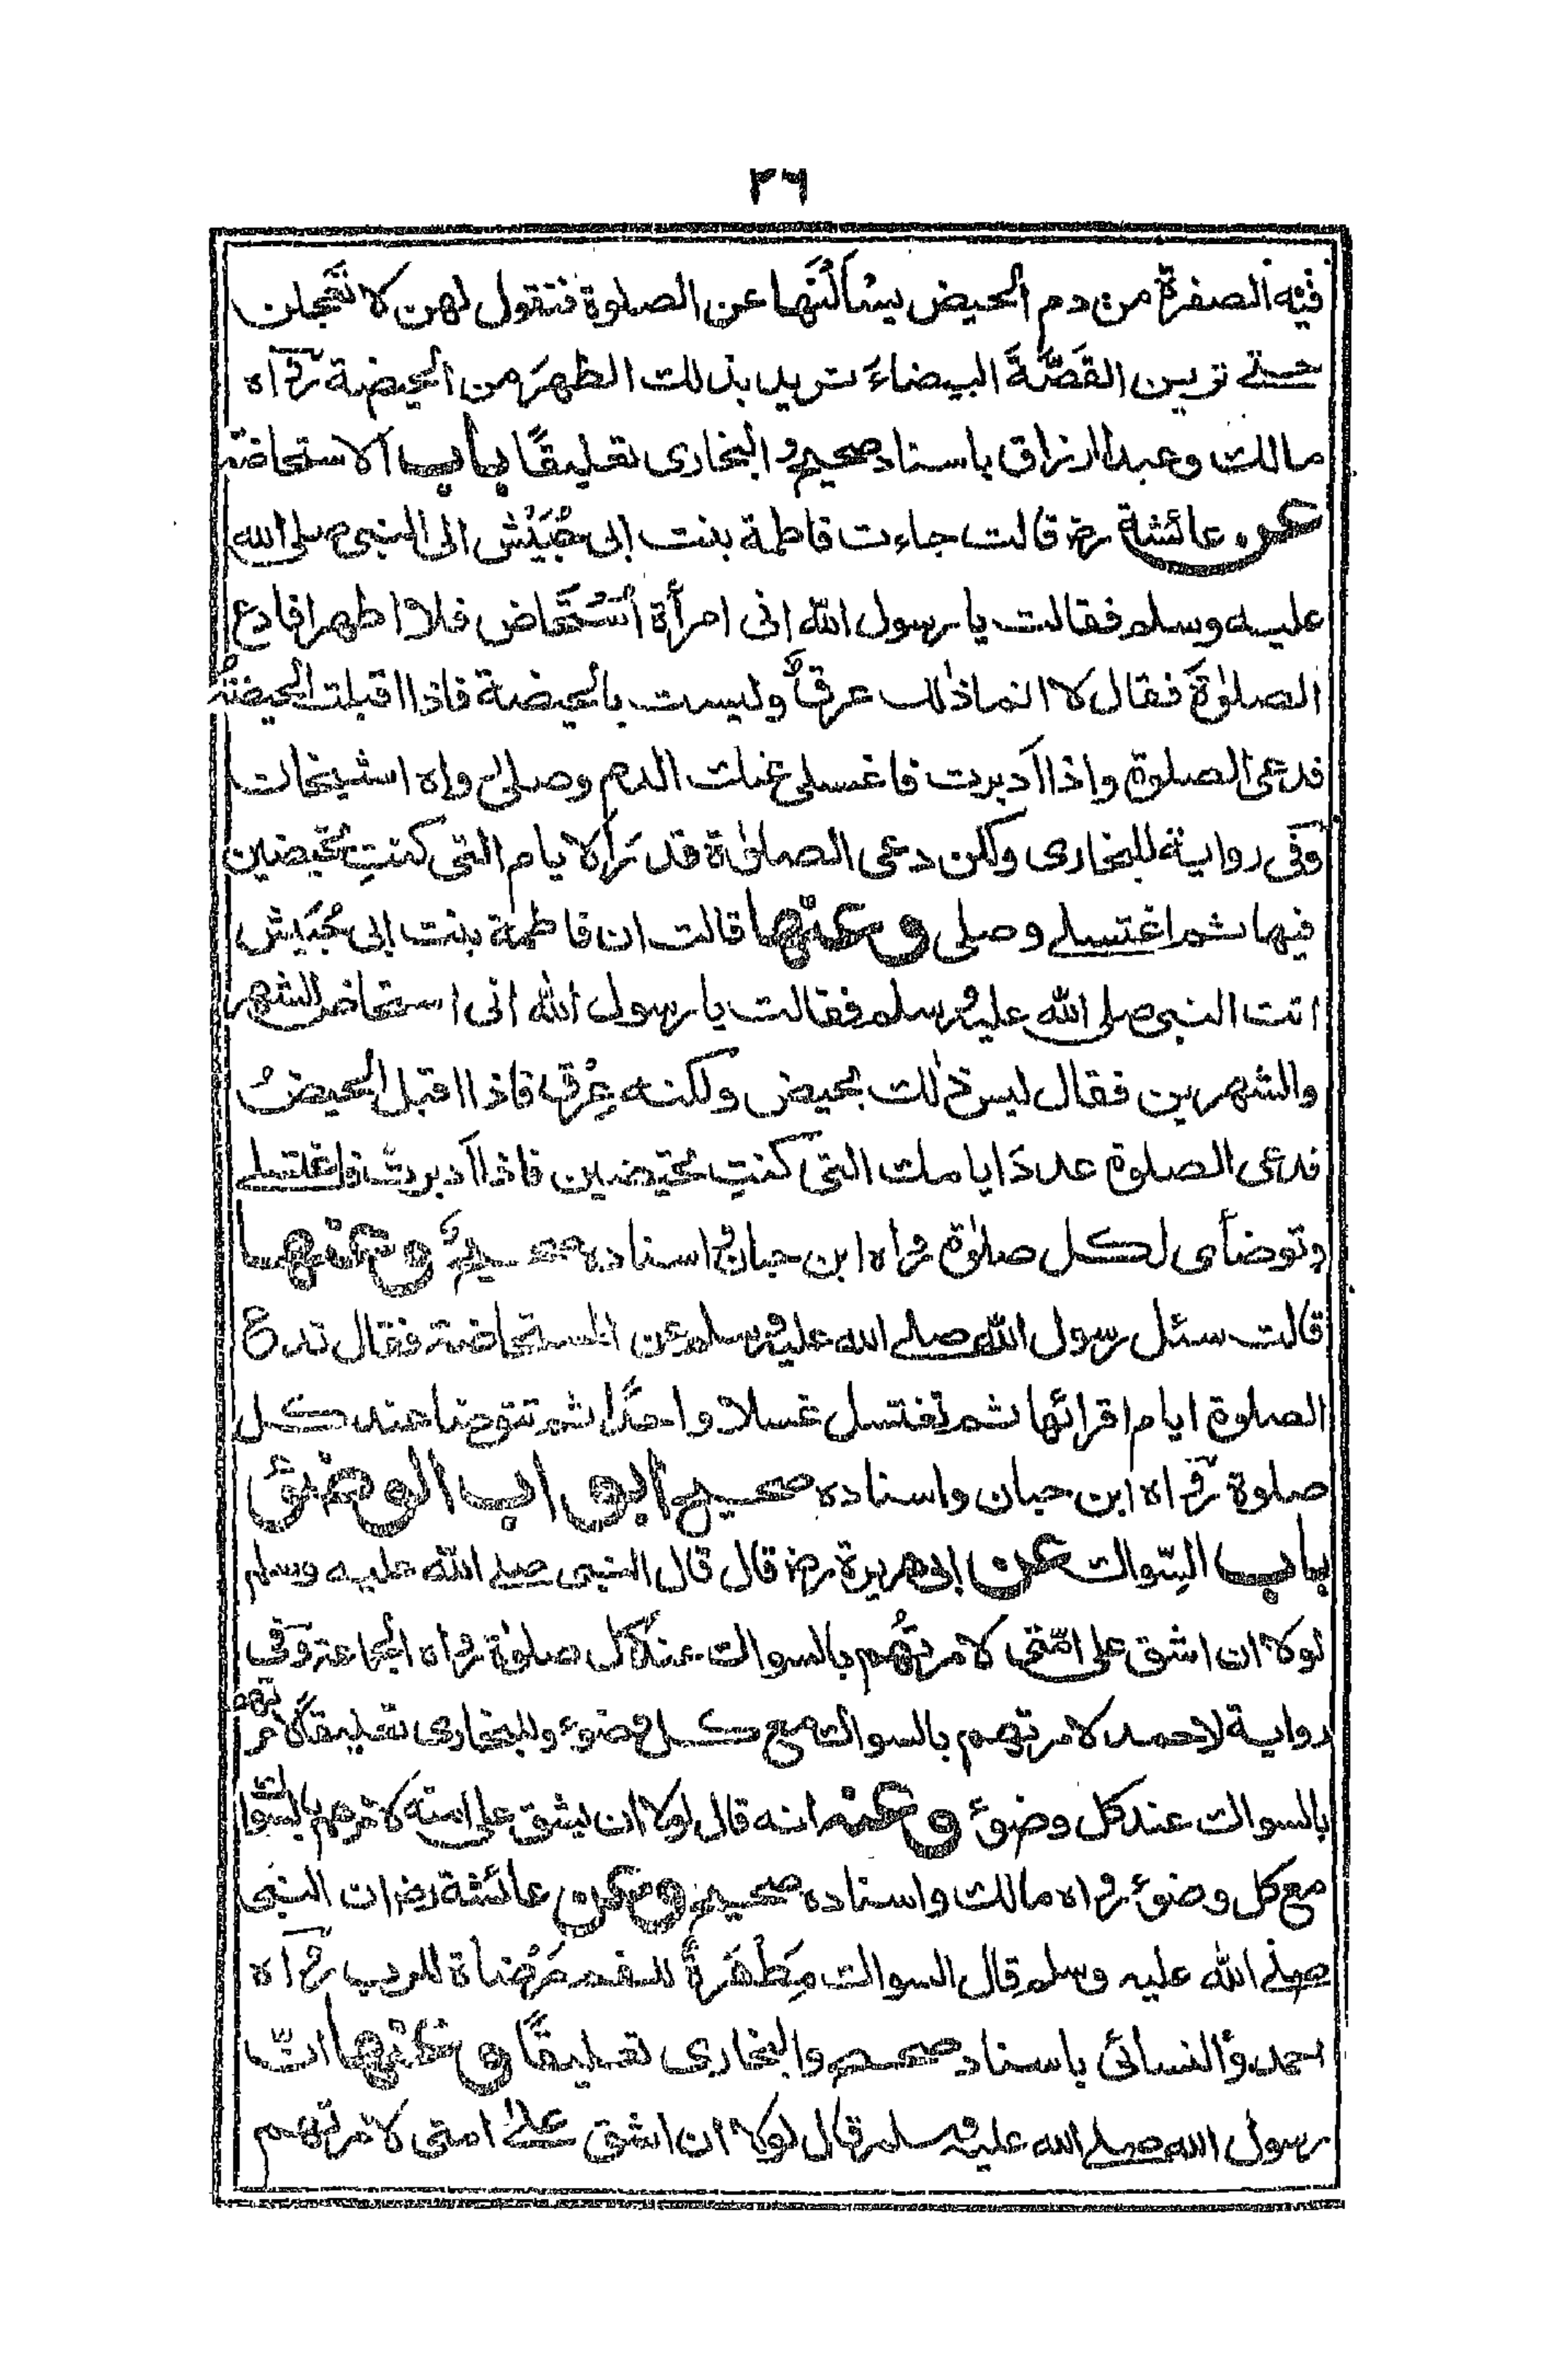 ٢٦
فيه الصفرة من دم الحيض يسْأَلْنَها عن الصلوة فتقول لهن لا تَعْجلن
حتى ترين القَصَّةَ البيضاءَ تريد بذلك الطهرَ من الحيضة رواه
مالك وعبد الرزاق باسناد صحيح و البخارى تعليقًا باب الاستحاضة
عن عائشة رض قالت جاءت فاطمة بنت ابى حُبَيْش الى النبى صلى الله
عليه وسلم فقالت يا رسول الله انى امرأة اُسْتَحَاض فلا اطهر افادع
الصلوٰةَ فقال لا انما ذٰلك عرقٌ وليست بالحيضة فاذا اقبلت الحيضةُ
فدعى الصلوة واذا ادبرت فاغسلى عنك الدم وصلى رواه الشيخان
وفى رواية للبخارى ولكن دعى الصلوٰة قدرَ الايام التى كنتِ تحيضين
فيها ثم اغتسلى وصلى وعنها قالت ان فاطمة بنت ابى حُبَيش
اتت النبى صلى الله عليه وسلم فقالت يا رسول الله انى استحاض الشهر
والشهرين فقال ليس ذٰلك بحيض ولكنه عِرْق فاذا اقبل الحيضُ
فدعى الصلوة عددَ ايامك التى كنتِ تحيضين فاذا ادبرت فاغتسلى
وتوضأى لكل صلوٰة رواه ابن حبان و اسناده صحيحٌ وعنها
قالت سئل رسول الله صلى الله عليه وسلم عن المستحاضة فقال تدع
الصلوة ايام اقرائها ثم تغتسل غسلا واحدًا ثم تتوضا عند كل
صلوة رواه ابن حبان واسناده صحيح ابواب الوضوء
باب السّواك عن ابى هريرة رض قال قال النبى صلى الله عليه وسلم
لولا ان اشق على امّتى لامرتهُم بالسواك عند كل صلوٰة رواه الجماعة وفى
رواية لاحمد لامرتهم بالسواك مع كل وضوء وللبخارى تعليقًا لامرتهم
بالسواك عند كل وضوء وعنه انه قال لولا ان يشق على امته لامرهم بالسواك
مع كل وضوء رواه مالك واسناده صحيح وعن عائشة رض ان النبى
صلى الله عليه وسلم قال السواك مِطْهَرَةٌ للفم مَرْضاة للرب رواه
احمد والنسائى باسناد صحيح والبخارى تعليقًا وعنها انّ
رسول الله صلى الله عليه وسلم قال لولا ان اشق على امتى لامرتهم